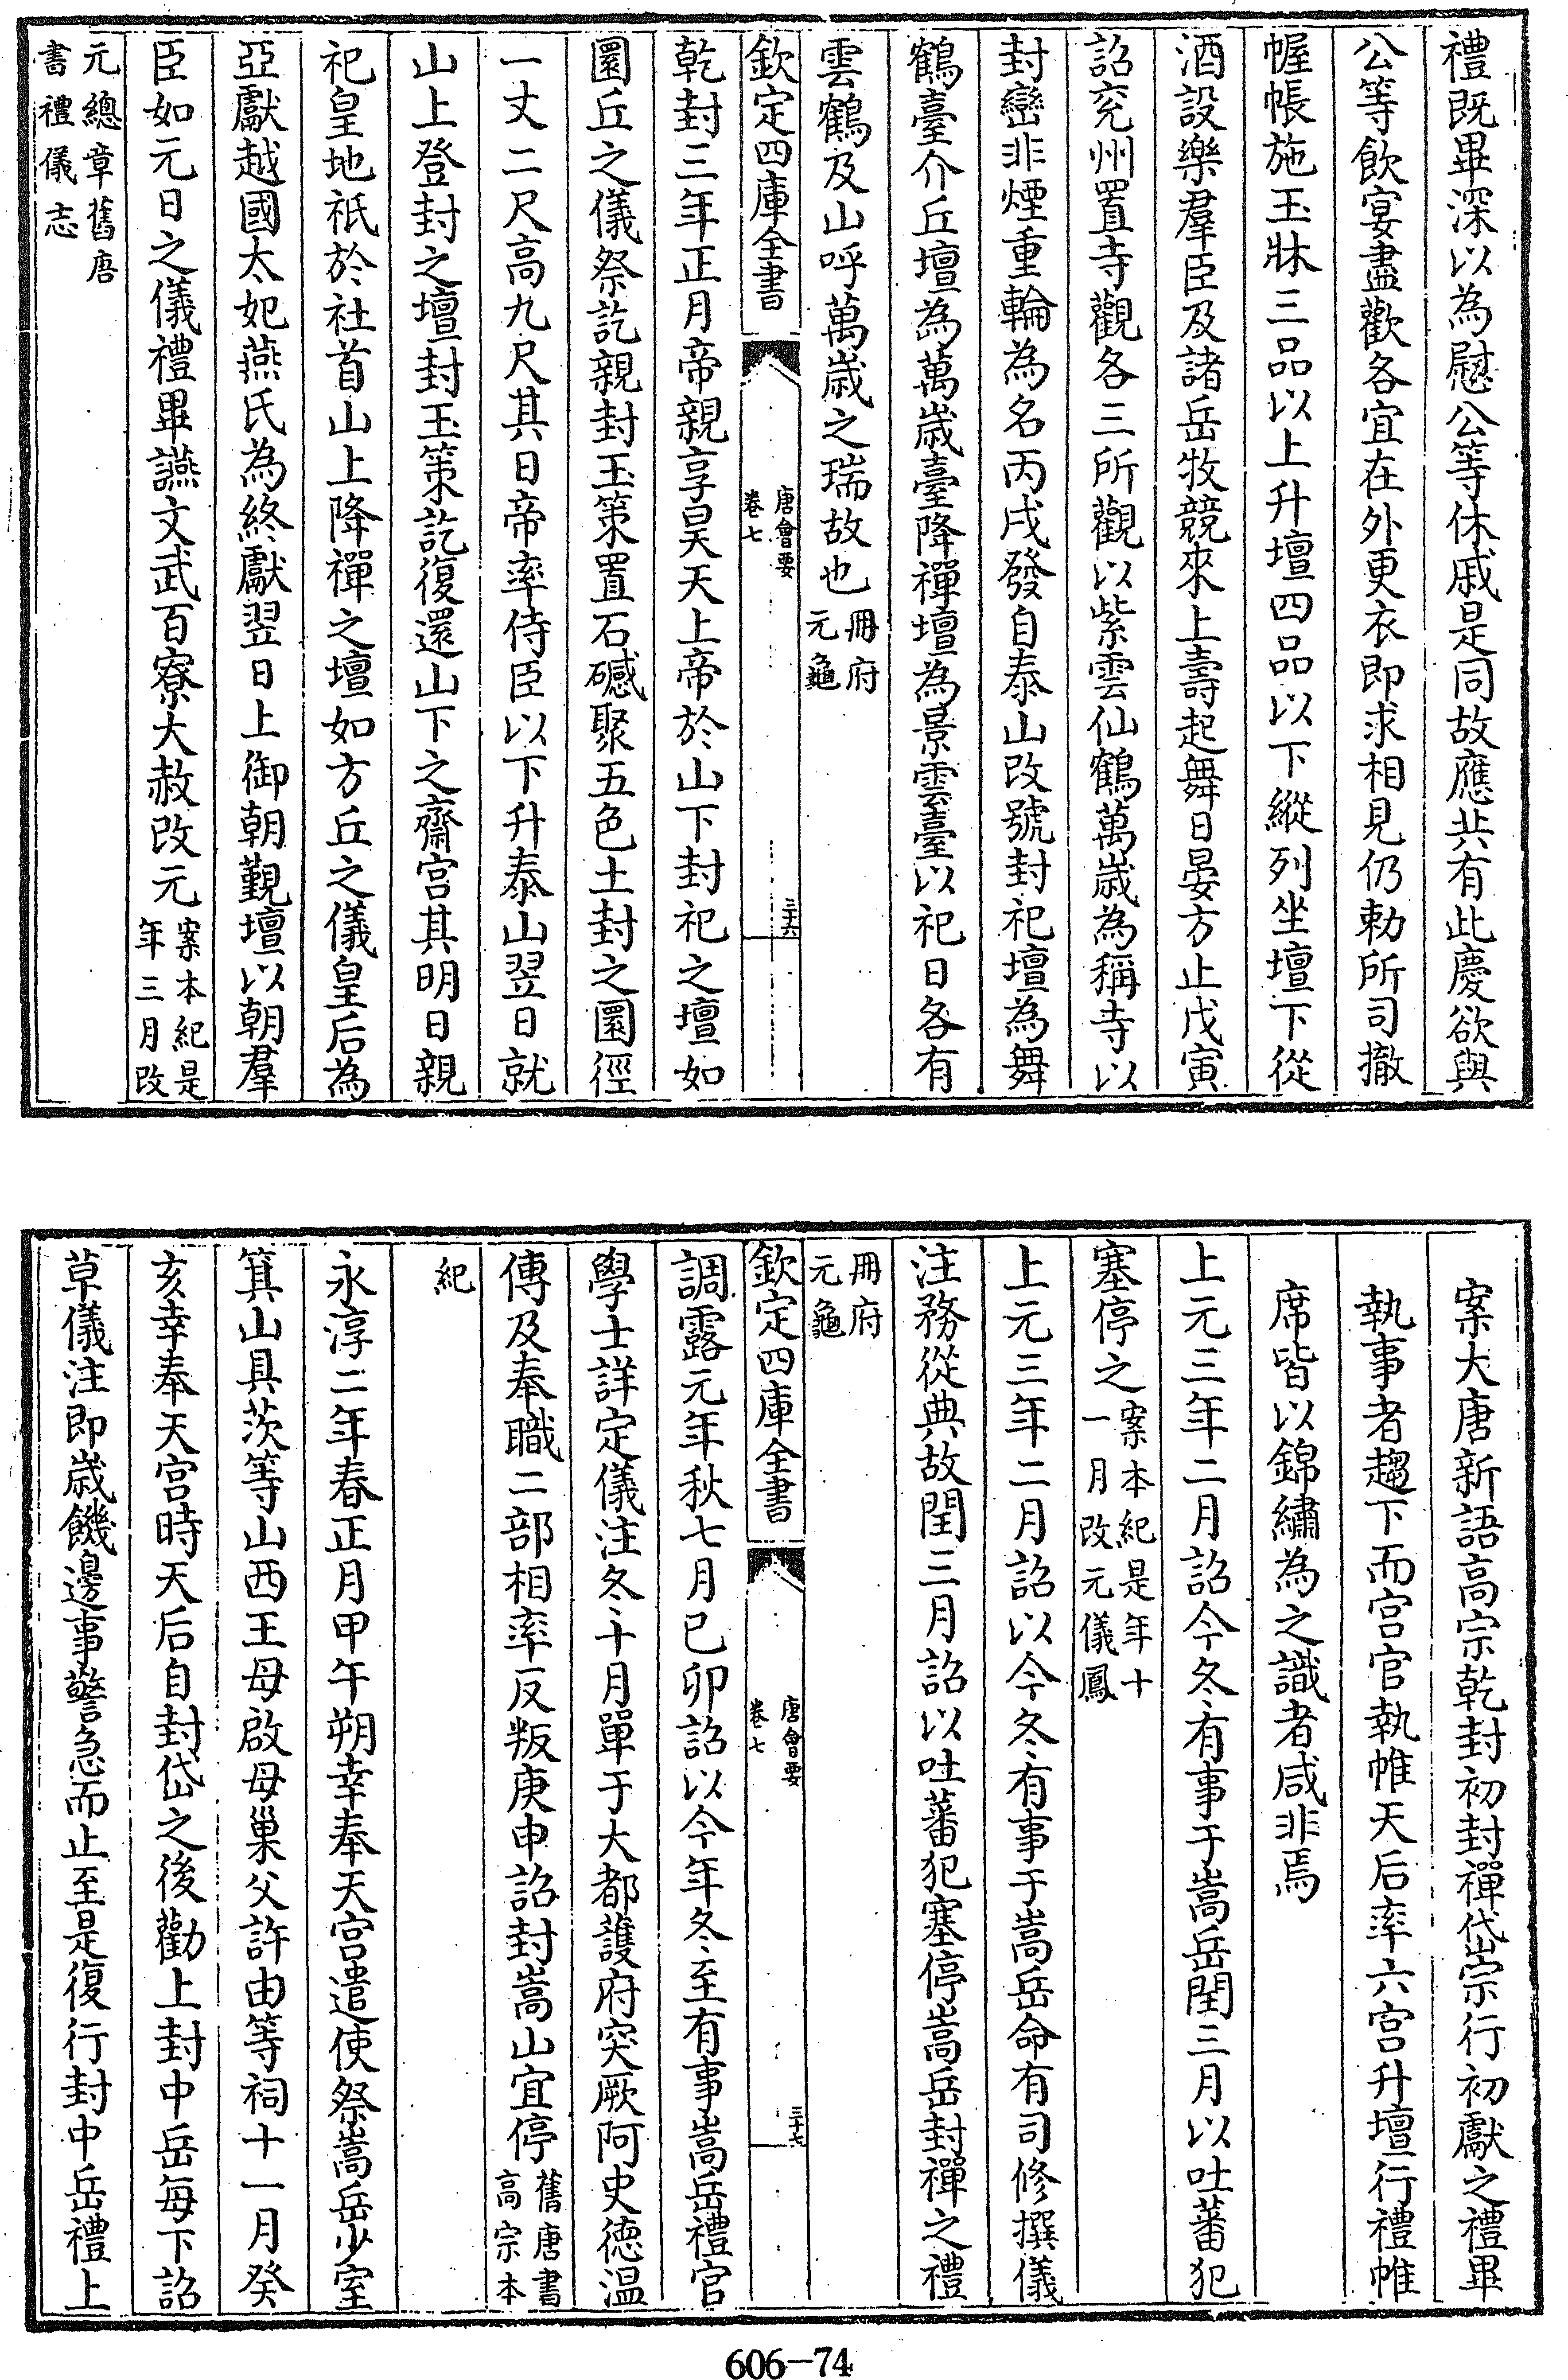 禮既畢深以為慰公等休戚是同故應共有此慶欲與
公等飲宴盡歡各宜在外更衣即求相見仍勅所司撤
幄帳施玉牀三品以上升壇四品以下縱列坐壇下從
酒設樂羣臣及諸岳牧競來上壽起舞日晏方止戊寅
詔兖州置寺觀各三所觀以紫雲仙鶴萬歲為稱寺以
封巒非煙重輪為名丙戌發自泰山改號封祀壇為舞
鶴臺介丘壇為萬歲臺降禪壇為景雲臺以祀日各有
雲鶴及山呼萬歲之瑞故也冊府
元龜
欽定四庫全書
唐會要
卷七
三十六
乾封三年正月帝親享昊天上帝於山下封祀之壇如
圜丘之儀祭訖親封玉策置石䃭聚五色土封之圜徑
一丈二尺高九尺其日帝率侍臣以下升泰山翌日就
山上登封之壇封玉策訖復還山下之齋宮其明日親
祀皇地祇於社首山上降禪之壇如方丘之儀皇后為
亞獻越國太妃燕氏為終獻翌日上御朝覲壇以朝羣
臣如元日之儀禮畢讌文武百寮大赦改元案本紀是
年三月改
元總章舊唐
書禮儀志
案大唐新語高宗乾封初封禪岱宗行初獻之禮畢
執事者趨下而宮官執帷天后率六宮升壇行禮帷
席皆以錦繡為之識者咸非焉
上元三年二月詔今冬有事于嵩岳閏三月以吐蕃犯
塞停之案本紀是年十
一月改元儀鳳
上元三年二月詔以今冬有事于嵩岳命有司修撰儀
注務從典故閏三月詔以吐蕃犯塞停嵩岳封禪之禮
冊府
元龜
欽定四庫全書
唐會要
卷七
三十七
調露元年秋七月己卯詔以今年冬至有事嵩岳禮官
學士詳定儀注冬十月單于大都護府突厥阿史德溫
傅及奉職二部相率反叛庚申詔封嵩山宜停舊唐書
高宗本
紀
永淳二年春正月甲午朔幸奉天宮遣使祭嵩岳少室
箕山具茨等山西王母啟母巢父許由等祠十一月癸
亥幸奉天宮時天后自封岱之後勸上封中岳每下詔
草儀注即歲饑邊事警急而止至是復行封中岳禮上
606—74